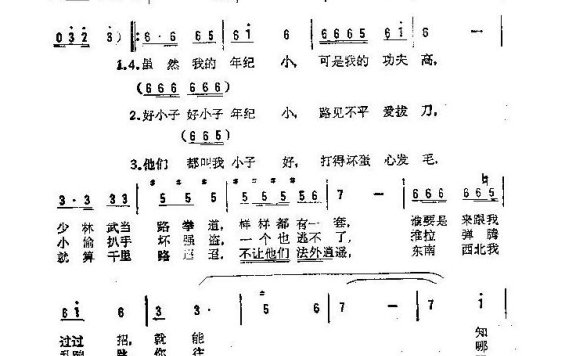 0 3 2 3) 6 · 6 6 5 6 i 6 6 6 6 5 6 i 6 —
1.4.虽然 我的 年纪 小, 可是我的 功夫 高,
(6 6 6 6 6 6)
2.好小子 好小子 年纪 小, 路见不平 爱拔 刀,
(6 6 5)
3.他们 都叫我 小子 好, 打得坏蛋 心发 毛,
3 · 3 3 3 5 5 5 5 5 5 5 5 6 7 — 6 6 6 6 6 6
少林 武当 路 拳道, 样样都 有一 套, 谁要是 来跟我
小偷 扒手 坏 强盗, 一个也 逃不 了, 推拉 弹 腾
就算 千里 路 迢迢, 不让他们 法外逍遥, 东南 西北我
6 i 3 3 · 5 6 7 7 7 i
过过 招, 就能 知
你 哪